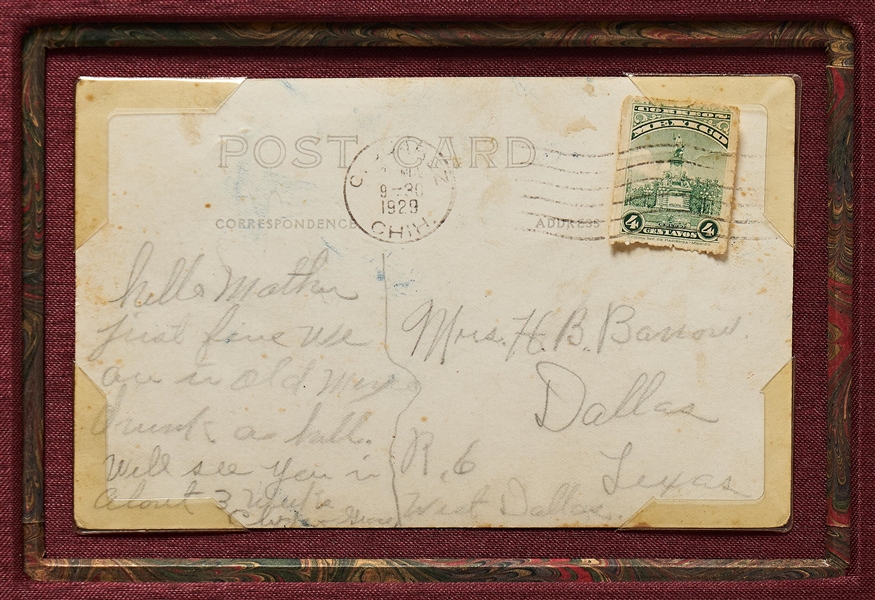 CORREOS
MEXICO
POST CARD
9-30
1929
CHIH.
4 CENTAVOS 4
CORRESPONDENCE
ADDRESS
hello Mother
just fine we
are in old Mex
drunk as hell.
will see you in
about 3 weeks
Mrs. H. B. Barrow.
Dallas
R. 6
Texas
West Dallas.